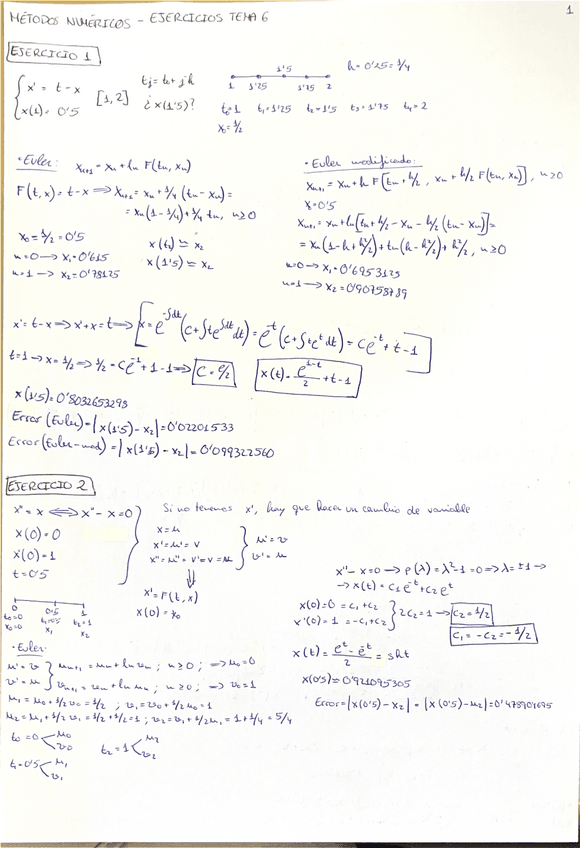 1
MÉTODOS NUMÉRICOS - EJERCICIOS TEMA 6
EJERCICIO 1
x' = t - x
x(1) = 0'5
[1,2]
tj = t0 + j·h
¿x(1'5)?
1'5
1 1'25 1'75 2
h = 0'25 = 1/4
t0 = 1 t1 = 1'25 t2 = 1'5 t3 = 1'75 t4 = 2
x0 = 1/2
· Euler: xn+1 = xn + hn F(tn, xn)
F(t,x) = t - x ⟹ xn+1 = xn + 1/4 (tn - xn) =
= xn(1 - 1/4) + 1/4 tn, n ≥ 0
x0 = 1/2 = 0'5
n=0 → x1 = 0'615
n=1 → x2 = 0'78125
x(t2) ≃ x2
x(1'5) ≃ x2
· Euler modificado:
xn+1 = xn + h F[tn + h/2, xn + h/2 F(tn, xn)], n ≥ 0
x0 = 0'5
xn+1 = xn + h[tn + h/2 - xn - h/2 (tn - xn)] =
= xn(1 - h + h²/2) + tn(h - h²/2) + h²/2, n ≥ 0
n=0 → x1 = 0'6953125
n=1 → x2 = 0'90758789
x' = t - x ⟹ x' + x = t ⟹ [x = e^-∫dt (c + ∫t e^∫dt dt) = e^-t (c + ∫t e^t dt) = c e^-t + t - 1]
t=1 → x = 1/2 ⟹ 1/2 = c e^-1 + 1 - 1 ⟹ c = e/2
x(t) = e^1-t/2 + t - 1
x(1'5) = 0'8032653298
Error (Euler) = |x(1'5) - x2| = 0'02201533
Error (Euler-mod) = |x(1'5) - x2| = 0'099322560
EJERCICIO 2
x'' = x ⟺ x'' - x = 0
x(0) = 0
x(0) = 1
t = 0'5
Si no tenemos x', hay que hacer un cambio de variable
x = u
x' = u' = v
x'' = u'' = v' = v = u
u' = v
v' = u
⇓
x' = F(t, x)
x(0) = x0
x'' - x = 0 → p(λ) = λ² - 1 = 0 ⟹ λ = ±1 →
→ x(t) = c1 e^-t + c2 e^t
x(0) = 0 = c1 + c2
x'(0) = 1 = -c1 + c2
2c2 = 1 → c2 = 1/2
c1 = -c2 = -1/2
x(t) = e^t - e^-t / 2 = sht
x(0'5) = 0'521095305
Error = |x(0'5) - x2| = |x(0'5) - u2| = 0'478904695
0 0'5 1
t0=0 t1=0'5 t2=1
x0=0 x1 x2
· Euler:
u' = v
v' = u
un+1 = un + hn vn; n ≥ 0; ⟹ u0 = 0
vn+1 = vn + hn un; n ≥ 0; ⟹ v0 = 1
u1 = u0 + 1/2 v0 = 1/2; v1 = v0 + 1/2 u0 = 1
u2 = u1 + 1/2 v1 = 1/2 + 1/2 = 1; v2 = v1 + 1/2 u1 = 1 + 1/4 = 5/4
t0 = 0 < u0 v0
t2 = 1 < u2 v2
t1 = 0'5 < u1 v1